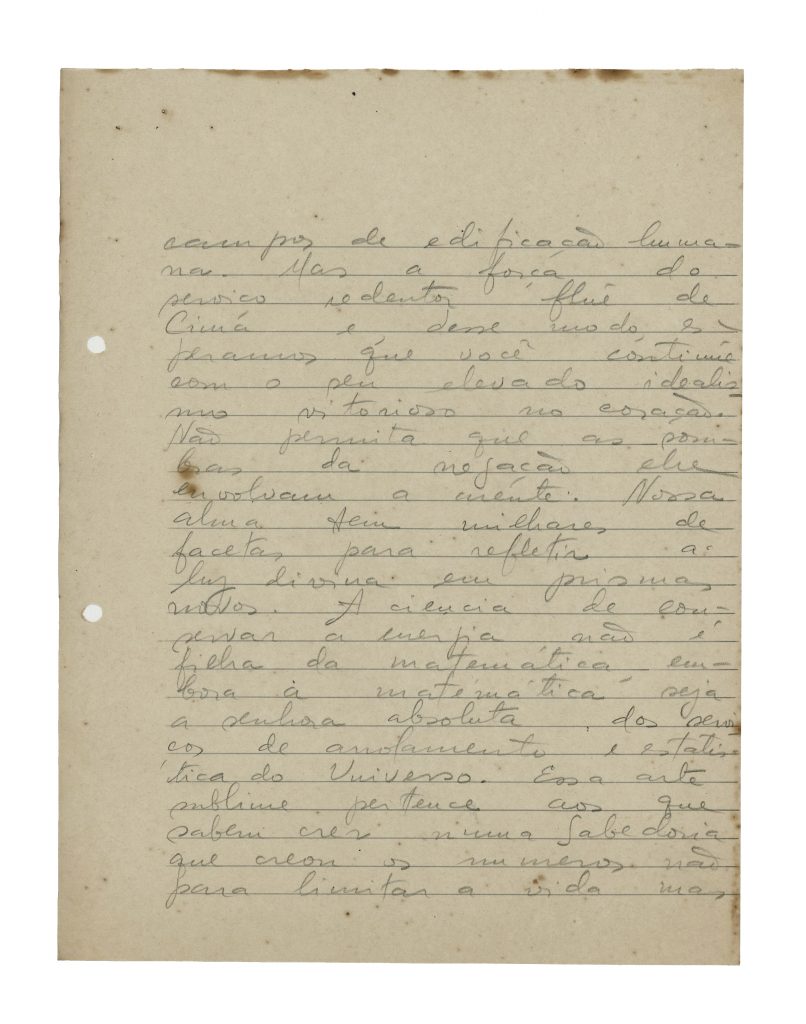 campos de edificação huma-
na. Mas a força do
serviço redentor flúe de
Cima e desse modo es-
peramos que você continúe
com o seu elevado idealis
mo vitorioso no coração.
Não permita que as som-
bras da negação lhe
envolvam a mente. Nossa
alma tem milhares de
facetas para refletir a
luz divina em prismas
novos. A ciência de con-
servar a energia não é
filha da matemática em-
bora a matemática seja
a senhora absoluta dos servi
ços de arrolamento e estatis
tica do Universo. Essa arte
sublime pertence aos que
sabem crer numa Sabedoria
que creou os numeros não
para limitar a vida mas